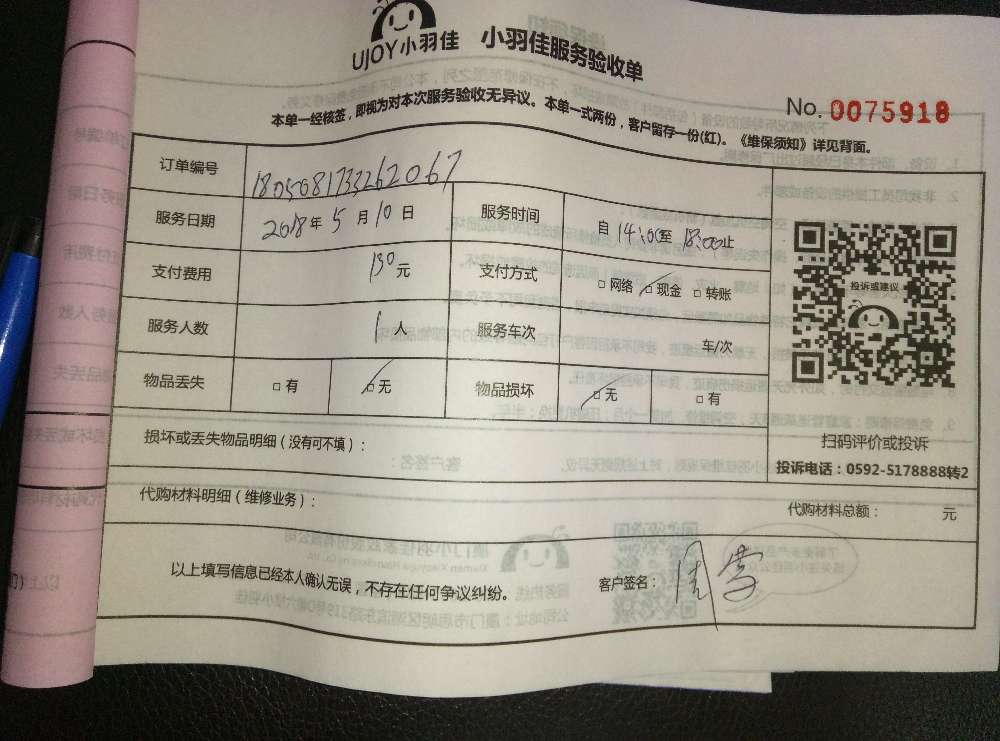 UJOY小羽佳 小羽佳服务验收单
No. 0075918
本单一经核签，即视为对本次服务验收无异议。本单一式两份，客户留存一份(红)。《维保须知》详见背面。
订单编号 1805081733262067
服务日期 2018年5月10日 服务时间 自14:00至18:00止
支付费用 130元 支付方式 □网络 □现金 □转账
服务人数 1人 服务车次 车/次
物品丢失 □有 □无 物品损坏 □无 □有
投诉或建议
扫码评价或投诉
投诉电话：0592-5178888转2
损坏或丢失物品明细（没有可不填）：
代购材料明细（维修业务）： 代购材料总额： 元
以上填写信息已经本人确认无误，不存在任何争议纠纷。 客户签名：